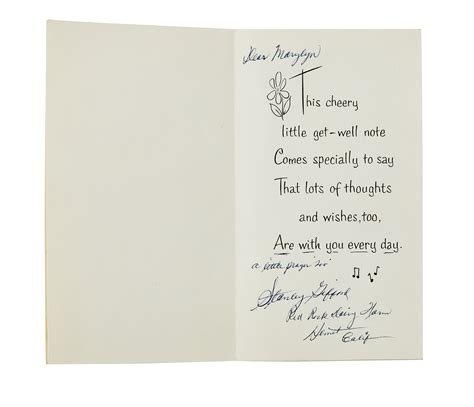 Dear Marylyn
This cheery
little get-well note
Comes specially to say
That lots of thoughts
and wishes, too,
Are with you every day.
a little prayer too
Stanley Gifford
Red Rock Dairy Farm
Hemet
Calif